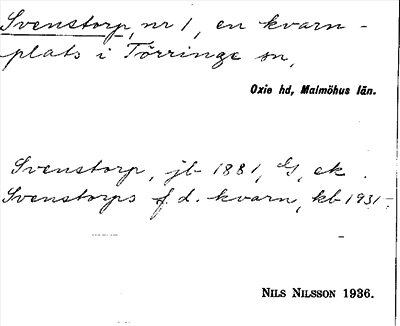 Svenstorp, nr 1, en kvarn-
plats i Törringe sn,
Oxie hd, Malmöhus län.
Svenstorp, jb 1881, ek.
Svenstorps f. d. kvarn, kb 1931-
NILS NILSSON 1936.